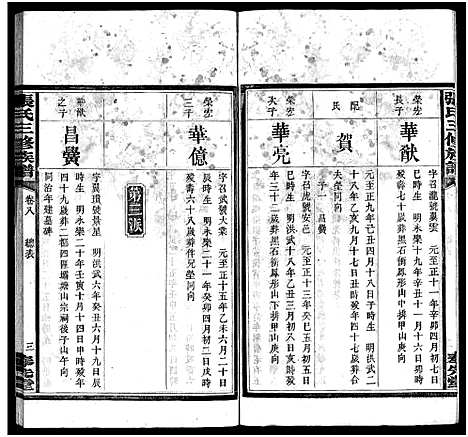 張氏三修族譜
榮宏
長子
華猷
字召龍號襄雲 元至正十一年辛卯四月初一日
巳時生 明永樂十九年辛丑十一月十六日卯時
歿壽七十一歲葬黑石衝鳳形山中排甲山庚向
配
賀
氏
元至正九年己丑四月十八日子時生 明洪武二
十八年乙亥九月十七日丑時歿年四十七歲葬附
夫塋同向
子一 昌黌
榮宏
次子
華亮
字召虎號安邑 元至正十三年癸巳五月初五日
巳時生 明洪武十八年乙丑三月初八日亥時歿
年三十三歲葬黑石衝鳳形山中排甲山庚向
榮宏
三子
華億
字召武號大業 元至正十五年乙未六月二十日
辰時生 明永樂二十一年癸卯四月初二日戌時
歿壽六十八歲葬伴兄塋同向
第三派
華猷
之子
昌黌
字翼瑣號景星 明洪武六年癸丑六月十九日辰
時生 明永樂二十年壬寅十月十四日申時歿年
四十九歲葬二都四區壩塘山宗祠後子山午向
同治年建墓碑
張氏三修族譜
卷八 總表
三
孝友堂